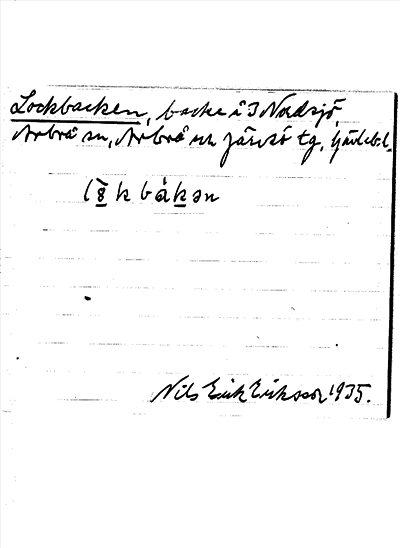 Lockbacken, backe i 3 Nordsjö,
Arbrå sn, Arbrå och Järvsö tg, Gävlebl.
Nils Erik Eriksson 1935.